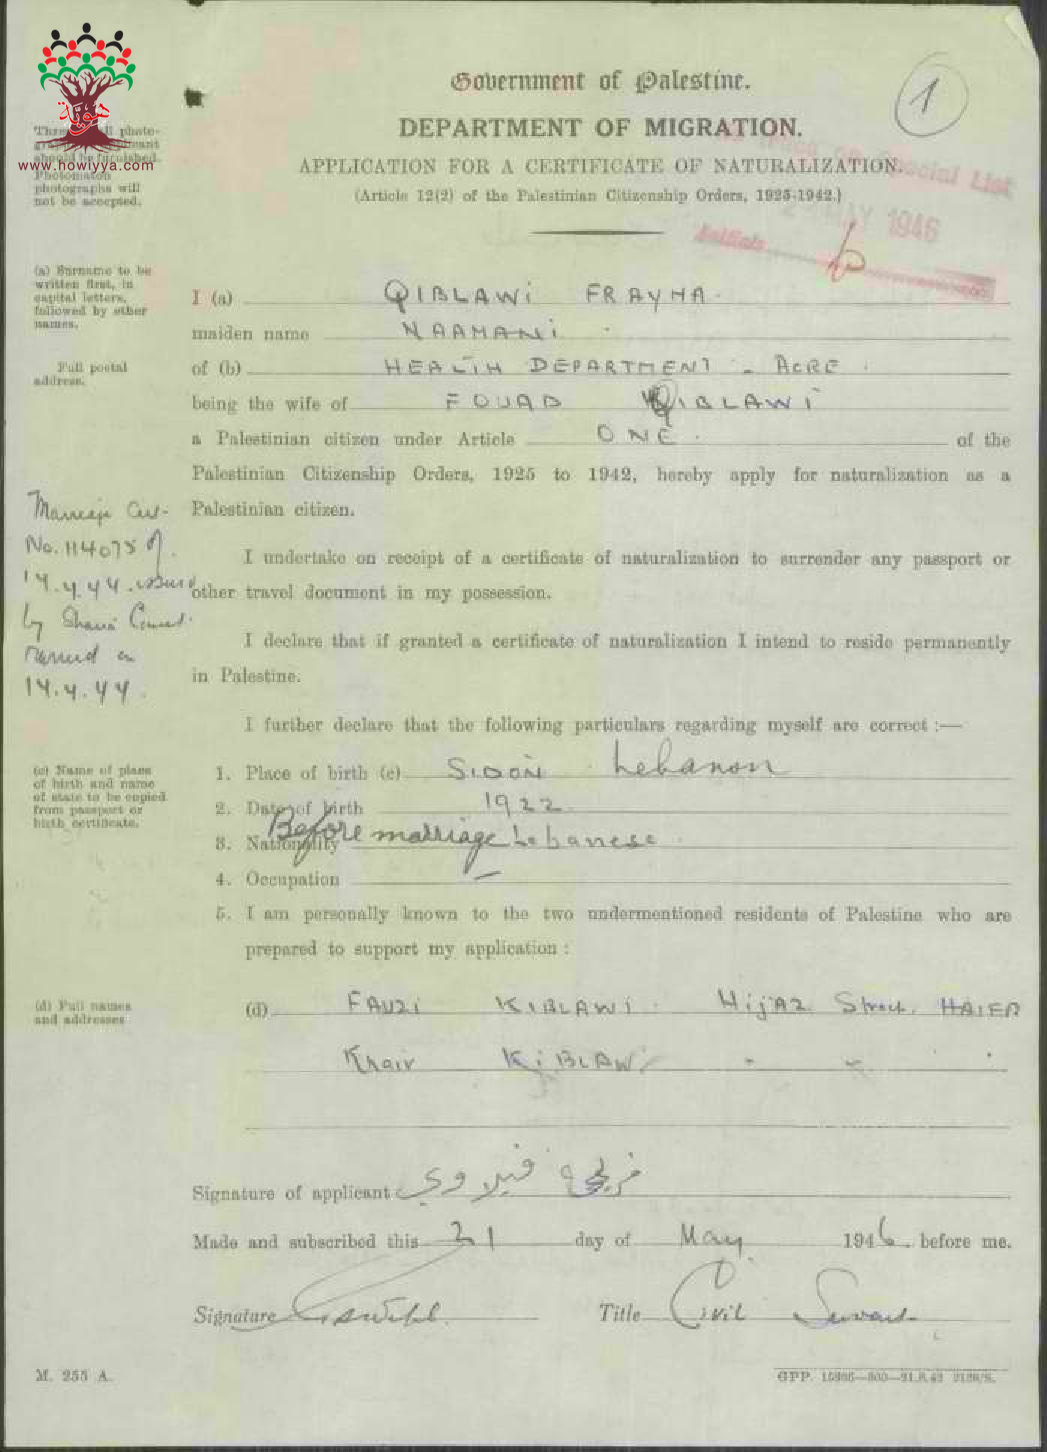 هوية
www.howiyya.com
Government of Palestine.
1
DEPARTMENT OF MIGRATION.
APPLICATION FOR A CERTIFICATE OF NATURALIZATION.
(Article 12(2) of the Palestinian Citizenship Orders, 1925-1942.)
Special List
MAY 1946
Initials
photo-
should be furnished.
Photomaton
photographs will
not be accepted.
(a) Surname to be
written first, in
capital letters,
followed by other
names.
I (a) QIBLAWI FRAYHA.
maiden name NAAMANI.
Full postal
address.
of (b) HEALTH DEPARTMENT - ACRE.
being the wife of FOUAD QIBLAWI
a Palestinian citizen under Article ONE. of the
Palestinian Citizenship Orders, 1925 to 1942, hereby apply for naturalization as a
Palestinian citizen.
Marriage Cert.
No. 114075 of
14.4.44. issued
by Sharia Court.
Married on
14.4.44.
I undertake on receipt of a certificate of naturalization to surrender any passport or
other travel document in my possession.
I declare that if granted a certificate of naturalization I intend to reside permanently
in Palestine.
I further declare that the following particulars regarding myself are correct :—
(c) Name of place
of birth and name
of state to be copied
from passport or
birth certificate.
1. Place of birth (c) SIDON Lebanon
2. Date of birth 1922.
Before marriage
3. Nationality Lebanese.
4. Occupation —
5. I am personally known to the two undermentioned residents of Palestine who are
prepared to support my application :
(d) Full names
and addresses
(d) FAUZI KIBLAWI. Hijaz Street. HAIFA
Khair KiBLAWi " " "
Signature of applicant فريحة قبلاوي
Made and subscribed this 21 day of May 1946. before me.
Signature Title Civil Servant
M. 255 A.
GPP.